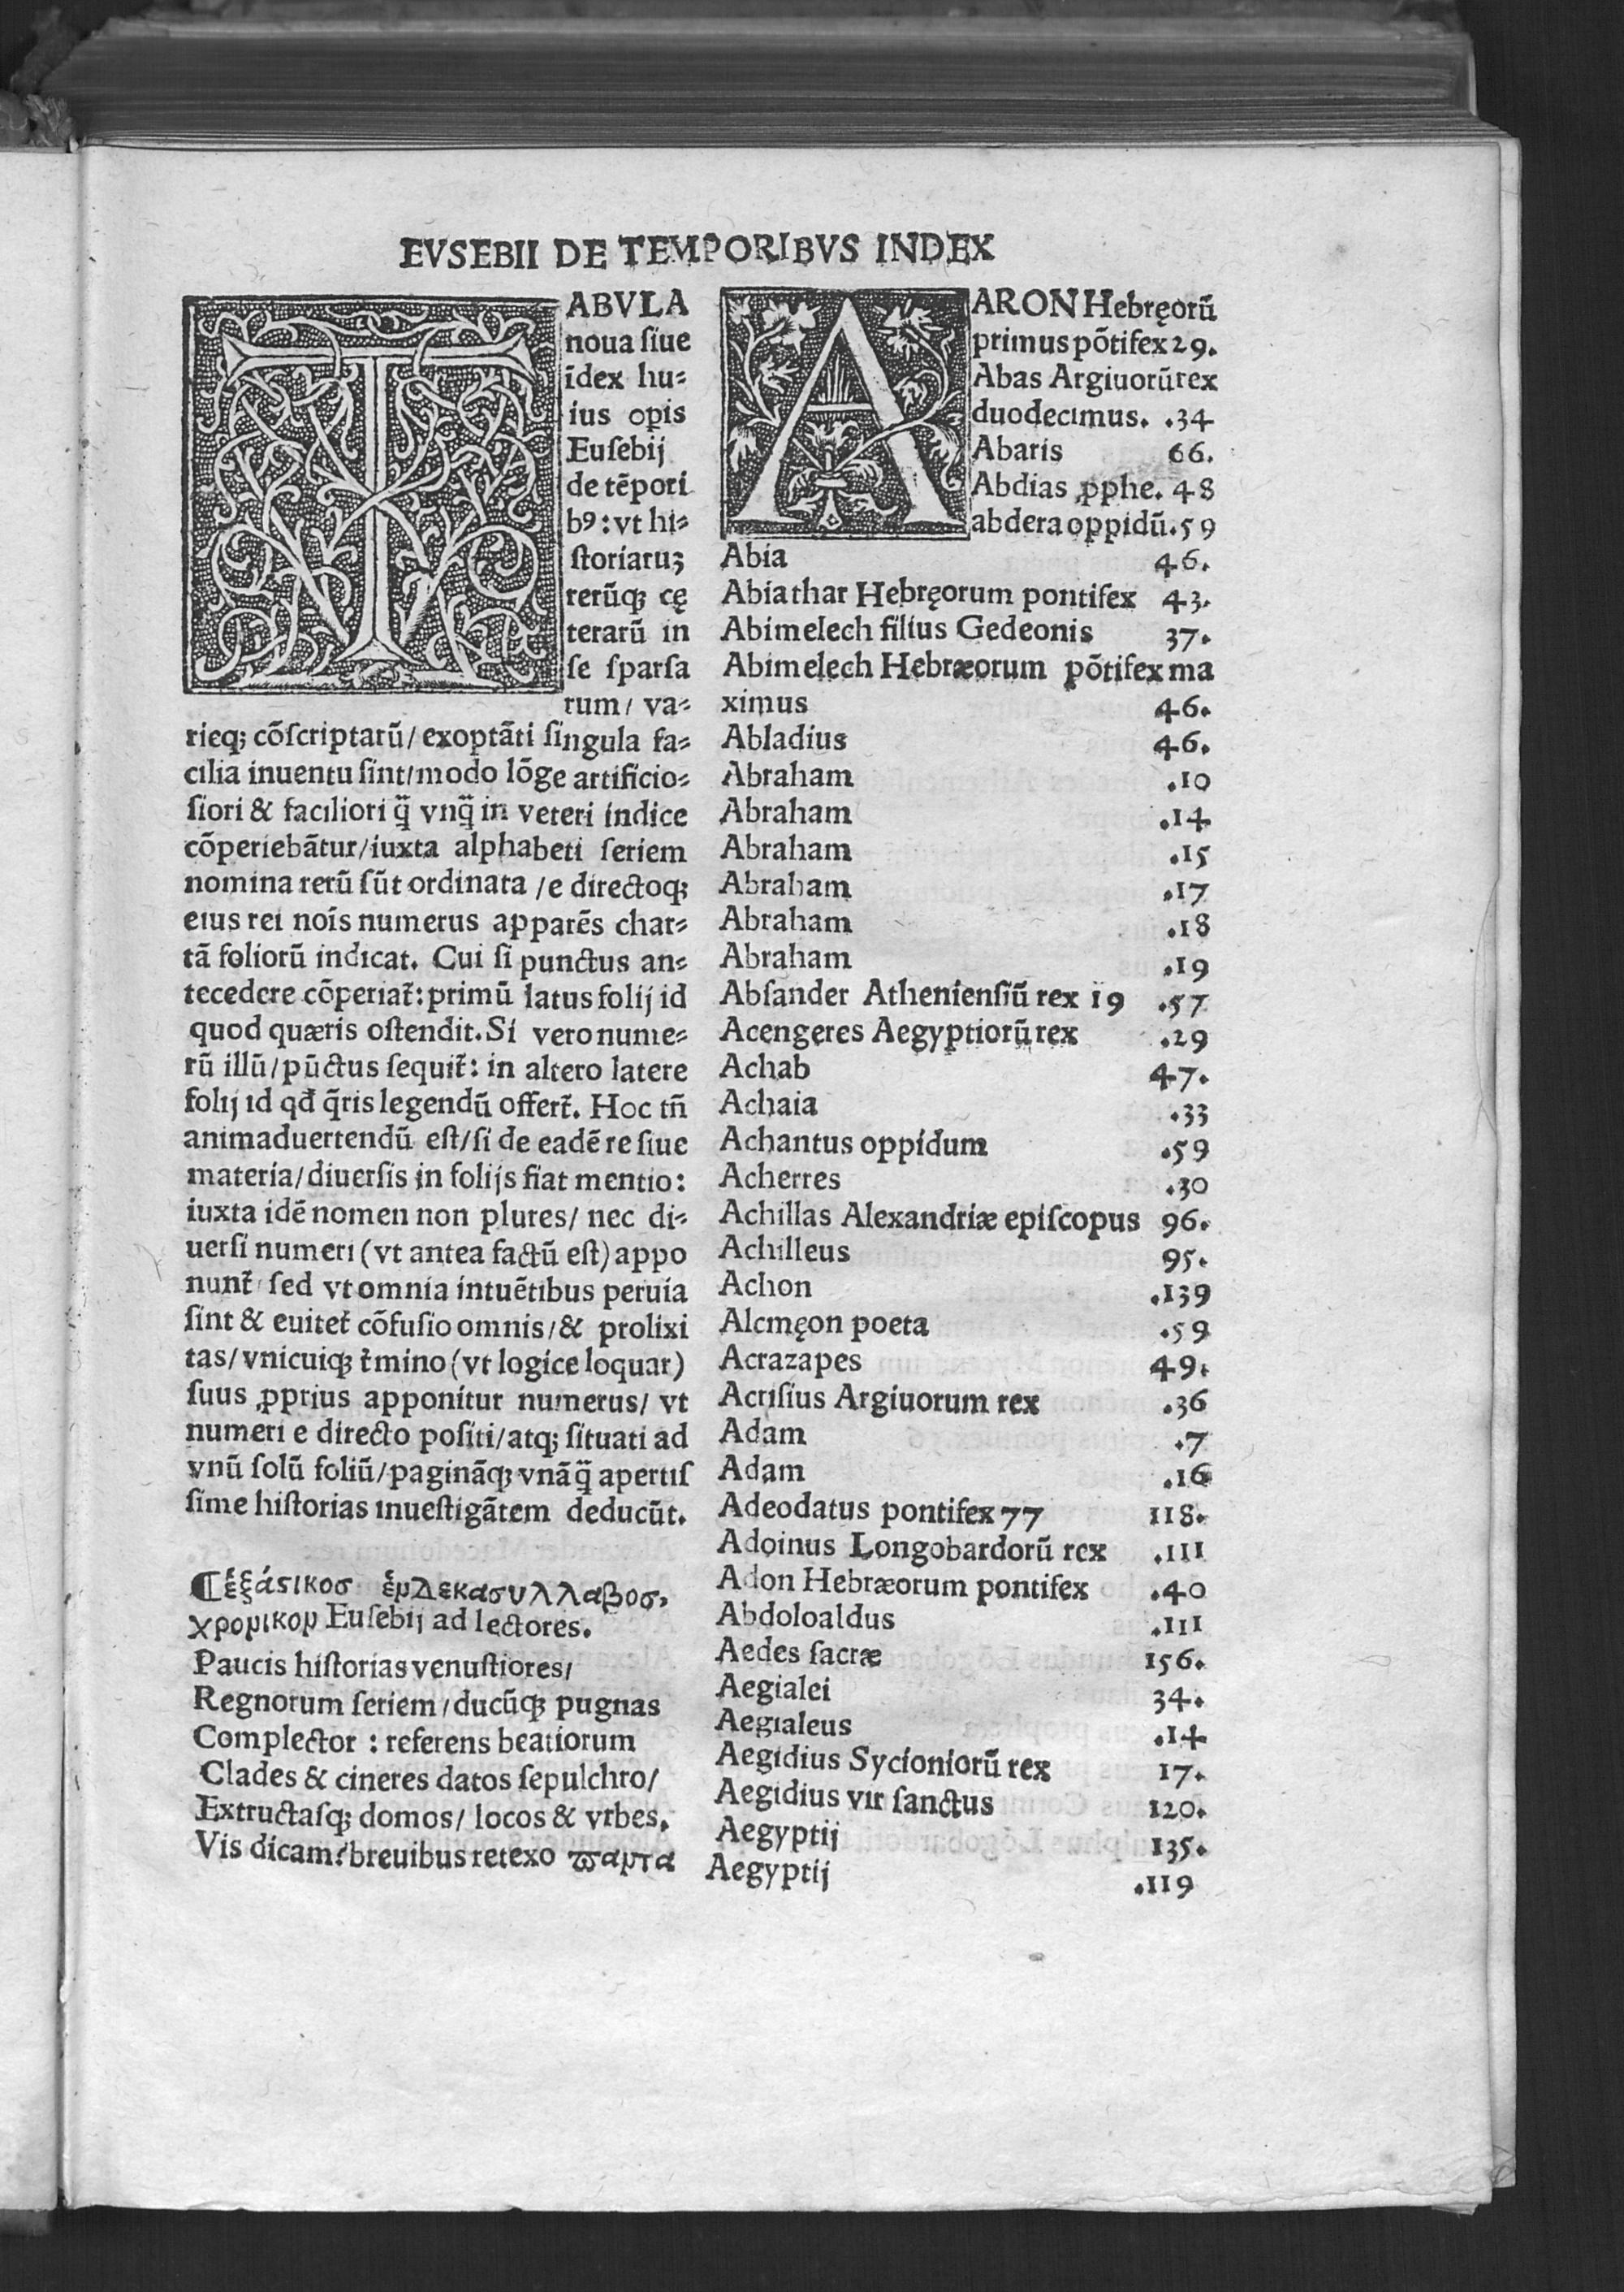 EVSEBII DE TEMPORIBVS INDEX
TABVLA
noua ſiue
īdex hu⸗
ius opis
Euſebij
de tēpori
bꝰ: vt hi⸗
ſtoriaruꝫ
rerūqꝫ cę
terarū in
ſe ſparſa
rum/ va⸗
rieqꝫ cōſcriptarū/ exoptāti ſingula fa⸗
cilia inuentu ſint/modo lōge artificio⸗
ſiori & faciliori q̄ vnq̄ in veteri indice
cōperiebātur/iuxta alphabeti ſeriem
nomina rerū ſūt ordinata /e directoqꝫ
eius rei noīs numerus apparēs char⸗
tā foliorū indicat. Cui ſi punctus an⸗
tecedere cōperiat̄: primū latus folij id
quod quæris oſtendit. Si vero nume⸗
rū illū/pūctus ſequit̄: in altero latere
folij id qđ q̄ris legendū offert̄. Hoc tn̄
animaduertendū eſt/ſi de eadē re ſiue
materia/diuerſis in folijs fiat mentio:
iuxta idē nomen non plures/ nec di⸗
uerſi numeri (vt antea factū eſt) appo
nunt̄/ ſed vt omnia intuētibus peruia
ſint & euitet̄ cōfuſio omnis/& prolixi
tas/ vnicuiqꝫ t̄mino (vt logice loquar)
ſuus ꝓprius apponitur numerus/ vt
numeri e directo poſiti/atqꝫ ſituati ad
vnū ſolū foliū/pagināqꝫ vnāq̄ apertiſ
ſime hiſtorias inueſtigātem deducūt.
¶ἑξάϛικοσ ἑνδεκασυλλαβοσ.
χρονικον Euſebij ad lectores.
Paucis hiſtorias venuſtiores/
Regnorum ſeriem/ducūqꝫ pugnas
Complector : referens beatiorum
Clades & cineres datos ſepulchro/
Extructaſqꝫ domos/ locos & vrbes.
Vis dicam? breuibus retexo ϖαντα
AARON Hebręorū
primus pōtifex 29.
Abas Argiuorū rex
duodecimus. .34
Abaris 66.
Abdias ꝓphe. 48
abdera oppidū .59
Abia 46.
Abiathar Hebręorum pontifex 43.
Abimelech filius Gedeonis 37.
Abimelech Hebræorum pōtifex ma
ximus 46.
Abladius 46.
Abraham .10
Abraham .14
Abraham .15
Abraham .17
Abraham .18
Abraham .19
Abſander Athenienſiū rex 19 .57
Acengeres Aegyptiorū rex .29
Achab 47.
Achaia .33
Achantus oppidum .59
Acherres .30
Achillas Alexandriæ epiſcopus 96.
Achilleus 95.
Achon .139
Alcmęon poeta .59
Acrazapes 49.
Acriſius Argiuorum rex .36
Adam .7
Adam .16
Adeodatus pontifex 77 118.
Adoinus Longobardorū rex .111
Adon Hebræorum pontifex .40
Abdoloaldus .111
Aedes ſacræ 156.
Aegialei 34.
Aegialeus .14
Aegidius Sycioniorū rex 17.
Aegidius vir ſanctus 120.
Aegyptij 135.
Aegyptij .119